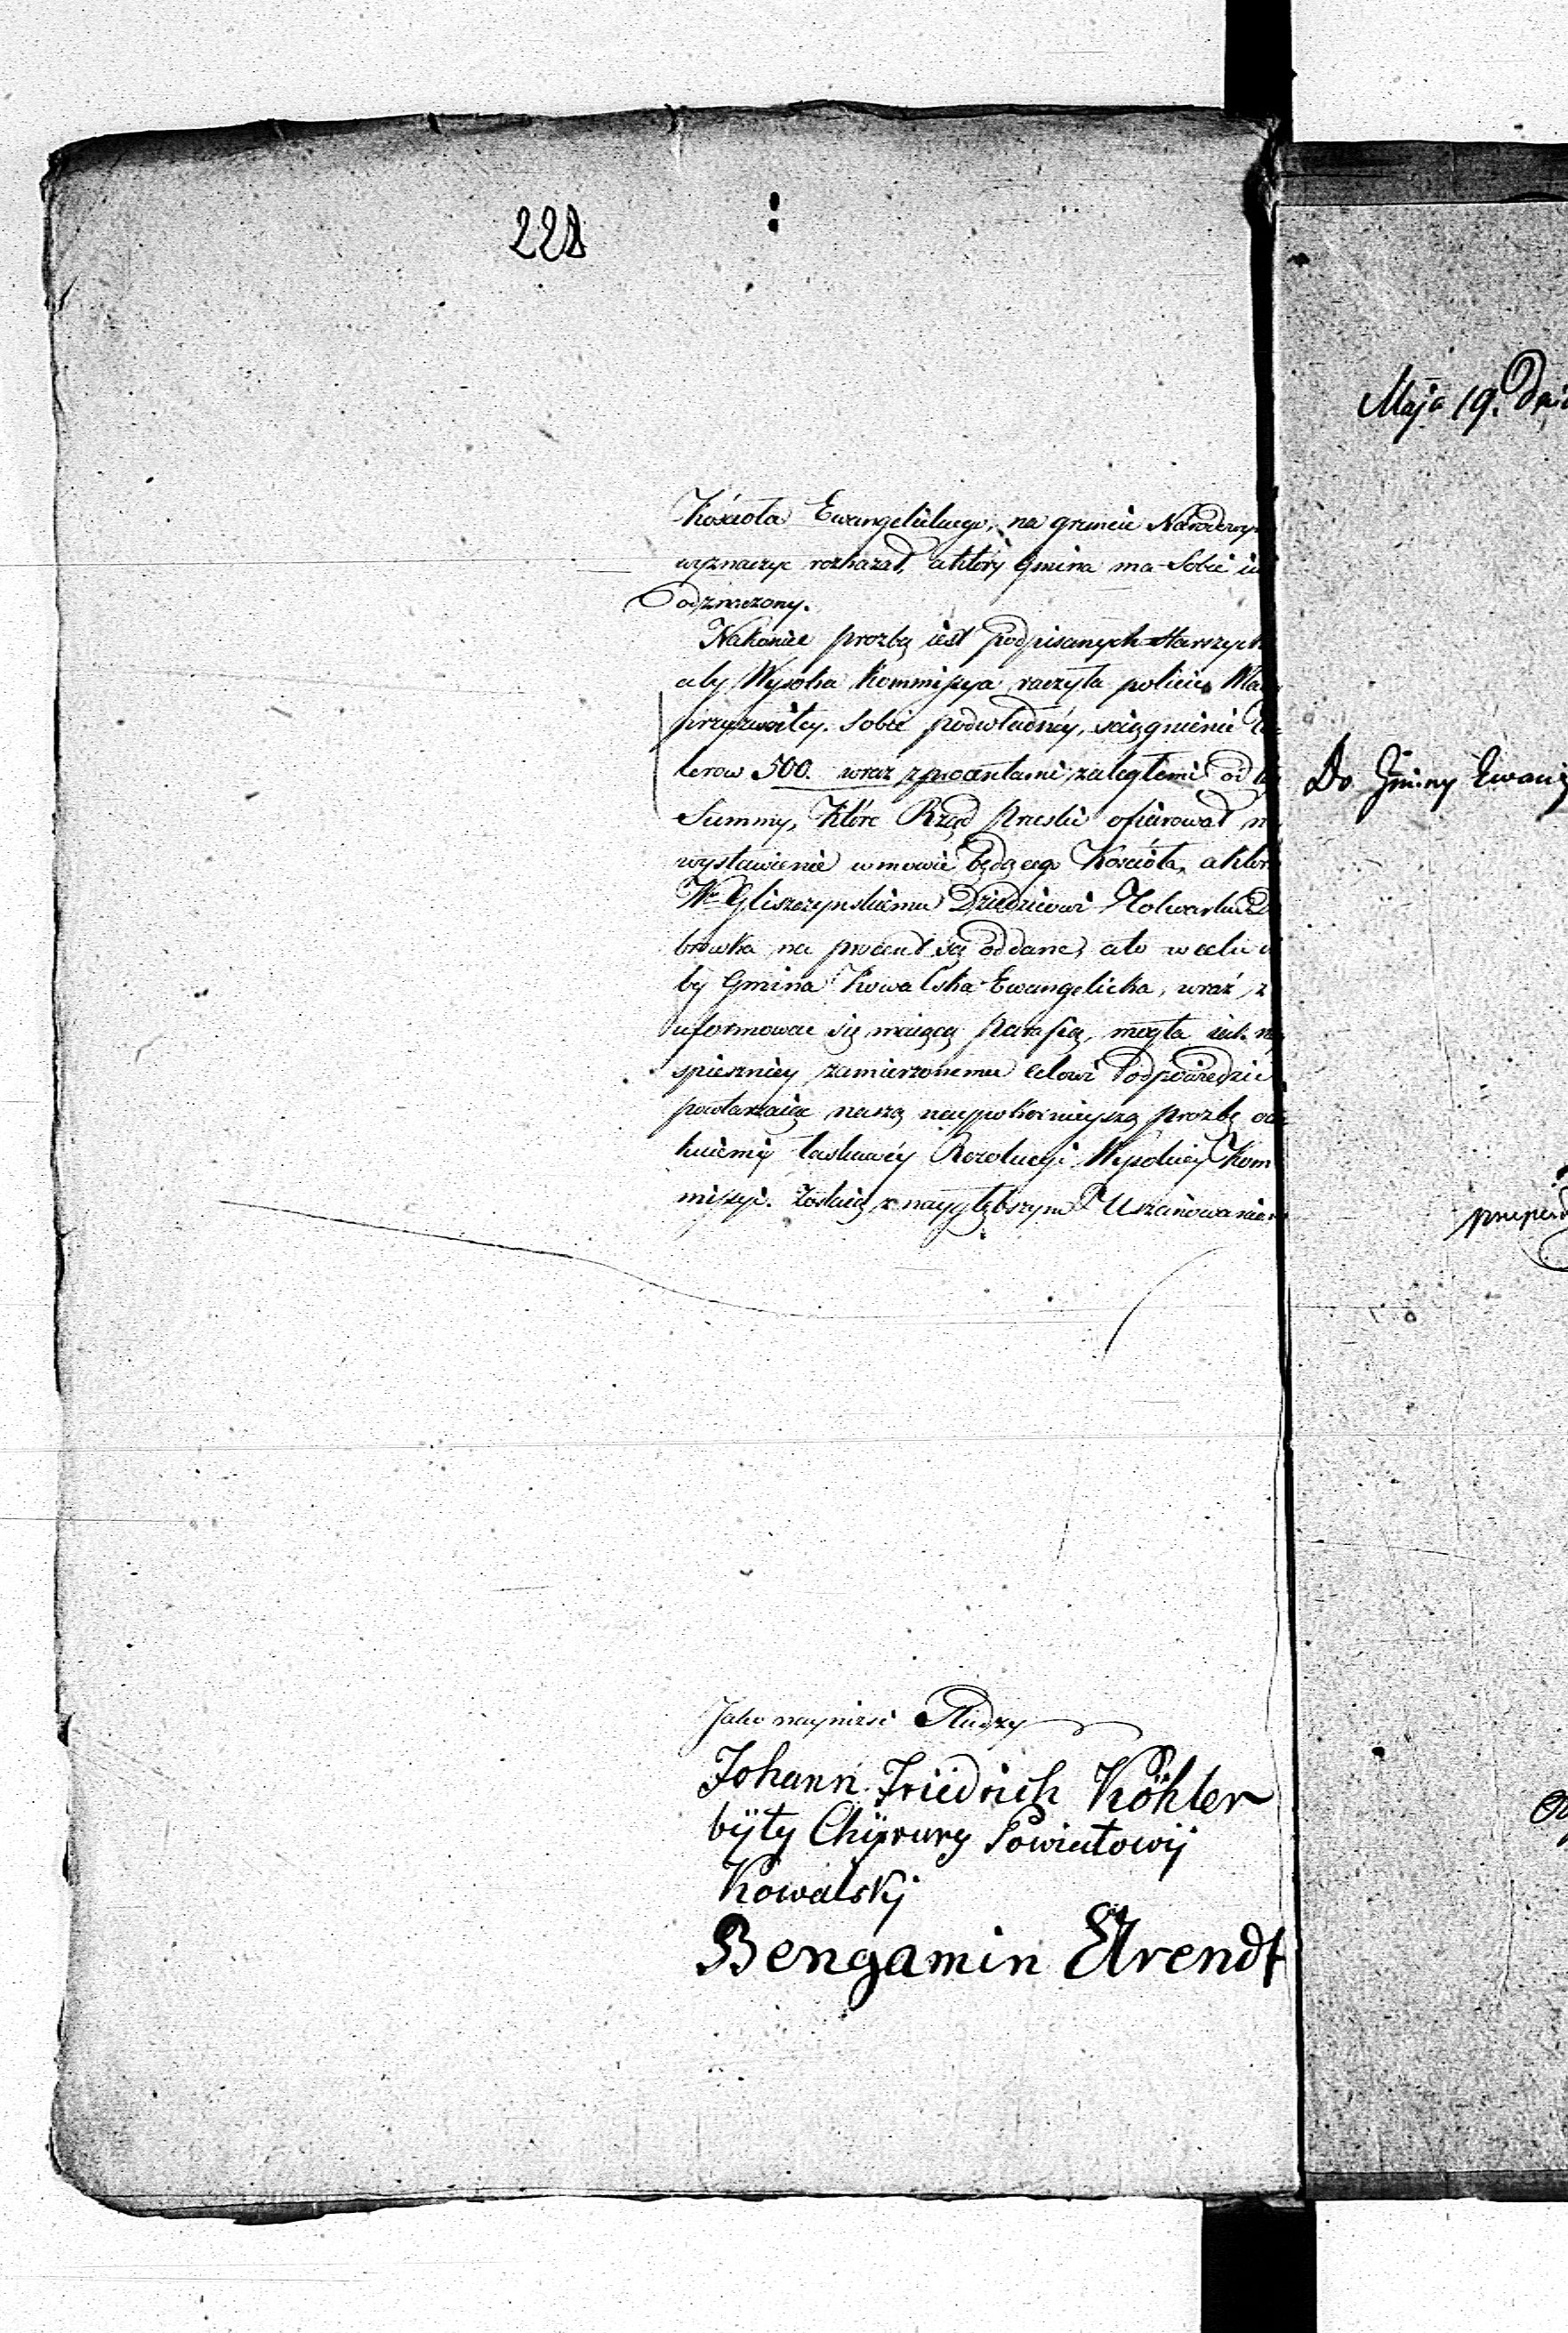 228
Kościoła Ewangelickiego, na gruncie Narodowy
wyznaczyc rozkazał, aktory Gmina ma Sobie iuż
odznaczony.
Nakoniec prozbą iest podpisanych Starszych
aby Wysoka Kommissya raczyła polecic Wła
przyzwoitey. Sobie podwładnéy, sciągnienie Ta
lerow 500. wraz zprocentami zaległemi od téy
Summy, które Rząd Pruski ofiarował na
wystawienie wmowie będącego Kościoła, aktore
Wu Gliszczynskiemu Dziedzicowi Folwarku D
browka na procent są oddane, ato w celu a
by Gmina Kowalska Ewangelicka, wraz z
uformowac się maiącą Parafią, mogła iak nay
spieszniey zamierzonemu celowi odpowiedziec
powtarzaiąc naszą naypokornieyszą prozbę ocze
kuiemy łaskawéy Rezolucyi Wysokiey Kom
missyi. Zostaią z naygłębszym Uszanowaniem
Jako nayniżsi Słudzy
Johann Friedrich Köhler
bÿły Chÿrurg Powiatowÿ
Kowalskj
Bengamin Arendt
Maja 19. Dnia
Do Gminy Ewang